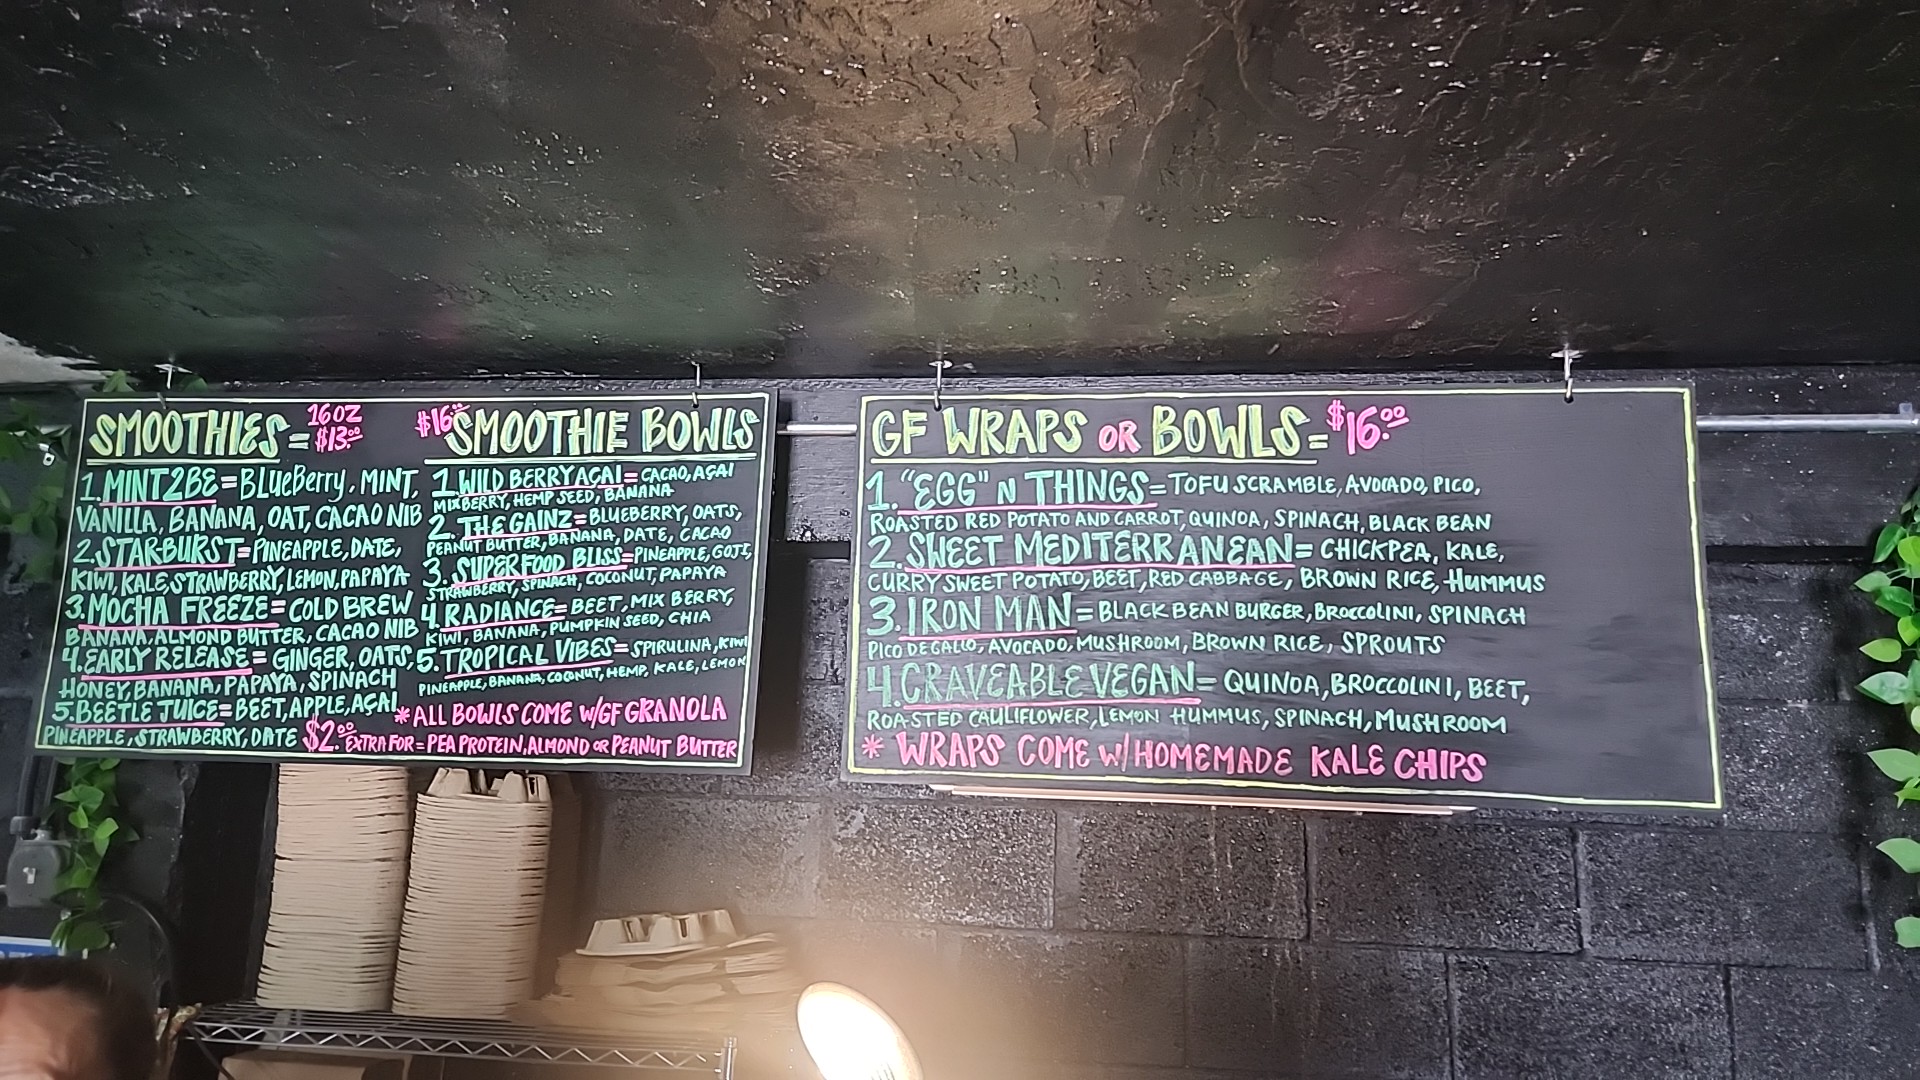 SMOOTHIES = 16OZ $13.00
1. MINT2BE = BLUEBERRY, MINT,
VANILLA, BANANA, OAT, CACAO NIB
2. STAR-BURST = PINEAPPLE, DATE,
KIWI, KALE, STRAWBERRY, LEMON, PAPAYA
3. MOCHA FREEZE = COLD BREW
BANANA, ALMOND BUTTER, CACAO NIB
4. EARLY RELEASE = GINGER, OATS,
HONEY, BANANA, PAPAYA, SPINACH
5. BEETLE JUICE = BEET, APPLE, AÇAI
PINEAPPLE, STRAWBERRY, DATE
$16.00 SMOOTHIE BOWLS
1. WILD BERRY AÇAI = CACAO, AÇAI
MIXBERRY, HEMP SEED, BANANA
2. THE GAINZ = BLUEBERRY, OATS,
PEANUT BUTTER, BANANA, DATE, CACAO
3. SUPERFOOD BLISS = PINEAPPLE, GOJI,
STRAWBERRY, SPINACH, COCONUT, PAPAYA
4. RADIANCE = BEET, MIX BERRY,
KIWI, BANANA, PUMPKIN SEED, CHIA
5. TROPICAL VIBES = SPIRULINA, KIWI
PINEAPPLE, BANANA, COCONUT, HEMP, KALE, LEMON
* ALL BOWLS COME W/GF GRANOLA
$2.00 EXTRA FOR = PEA PROTEIN, ALMOND OR PEANUT BUTTER
GF WRAPS OR BOWLS = $16.00
1. "EGG" N THINGS = TOFU SCRAMBLE, AVOCADO, PICO,
ROASTED RED POTATO AND CARROT, QUINOA, SPINACH, BLACK BEAN
2. SWEET MEDITERRANEAN = CHICKPEA, KALE,
CURRY SWEET POTATO, BEET, RED CABBAGE, BROWN RICE, HUMMUS
3. IRON MAN = BLACK BEAN BURGER, BROCCOLINI, SPINACH
PICO DE GALLO, AVOCADO, MUSHROOM, BROWN RICE, SPROUTS
4. CRAVEABLE VEGAN = QUINOA, BROCCOLINI, BEET,
ROASTED CAULIFLOWER, LEMON HUMMUS, SPINACH, MUSHROOM
* WRAPS COME W/HOMEMADE KALE CHIPS